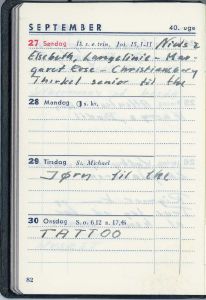 SEPTEMBER 40. uge
27 Søndag 18. s. e. trin. Joh. 15, 1-11 Niels &
Elsebeth, Langelinie - Mar-
garet Rose - Christiansborg
Thirkel senior til the
28 Mandag s. kv.
29 Tirsdag St. Michael
Jørn til the
30 Onsdag S. o. 6,12 n. 17,46
TATTOO
82